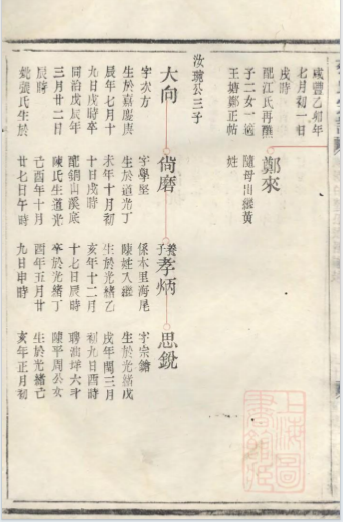 咸豐乙卯年
七月初一日
戌時
配江氏再醮
子二女一適
王塘鄭正帖
鄭來
隨母出繼黃
姓
汝琬公三子
大向
字次方
生於嘉慶庚
辰年七月十
九日戌時卒
同治戊辰年
三月廿二日
辰時
妣張氏生於
尙磨
字學堅
生於道光丁
未年十月初
十日戌時
配銅山溪底
陳氏生道光
己酉年十月
廿七日午時
養子孝炳
係木里海尾
陳姓入繼
生於光緒乙
亥年十二月
十七日辰時
卒於光緒丁
酉年五月廿
九日申時
思銳
字宗鏞
生於光緒戊
戌年閏三月
初九日酉時
聘 坪六斗
陳平周公女
生於光緒己
亥年正月初
上海圖
書館藏